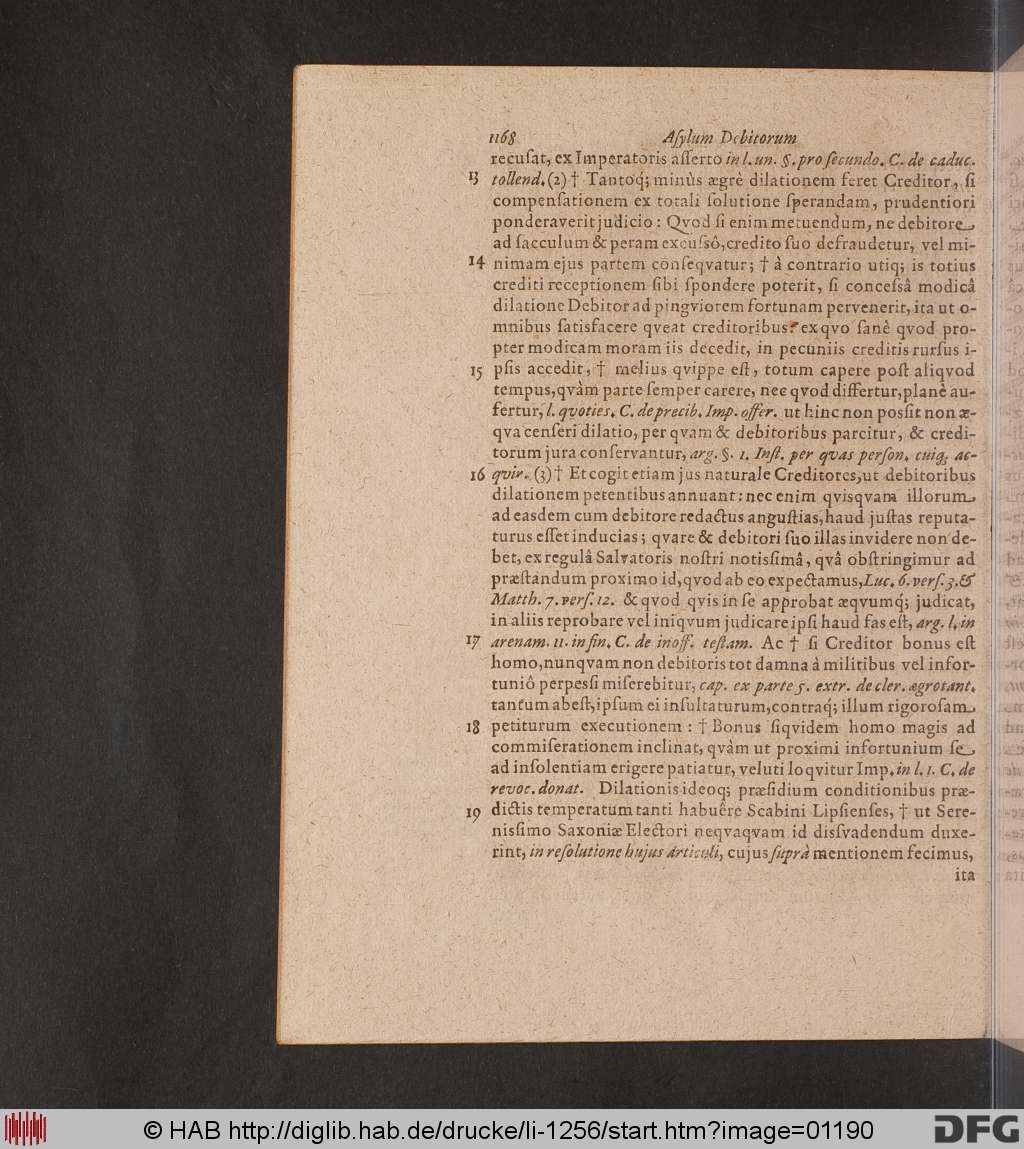 1168 Aſylum Debitorum
recuſat, ex Imperatoris aſſerto in l. un. §. pro ſecundo. C. de caduc.
13 tollend. (2) † Tantoq́; minùs ægrè dilationem feret Creditor, ſi
compenſationem ex totali ſolutione ſperandam, prudentiori
ponderaverit judicio: Qvod ſi enim metuendum, ne debitore
ad ſacculum & peram excuſsô, credito ſuo defraudetur, vel mi-
14 nimam ejus partem conſeqvatur; † à contrario utiq; is totius
crediti receptionem ſibi ſpondere poterit, ſi conceſsâ modicâ
dilatione Debitor ad pingviorem fortunam pervenerit, ita ut o-
mnibus ſatisfacere qveat creditoribus? ex qvo ſanè qvod pro-
pter modicam moram iis decedit, in pecuniis creditis rurſus i-
15 pſis accedit, † melius qvippe eſt, totum capere poſt aliqvod
tempus, qvàm parte ſemper carere, nec qvod differtur, planè au-
fertur, l. qvoties. C. de precib. Imp. offer. ut hinc non poſſit non æ-
qva cenſeri dilatio, per qvam & debitoribus parcitur, & credi-
torum jura conſervantur, arg. §. 1. Inſt. per qvas perſon. cuiq; ac-
16 qvir. (3) † Et cogit etiam jus naturale Creditores, ut debitoribus
dilationem petentibus annuant: nec enim qvisqvam illorum
ad easdem cum debitore redactus anguſtias, haud juſtas reputa-
turus eſſet inducias; qvare & debitori ſuo illas invidere non de-
bet, ex regulâ Salvatoris noſtri notisſimâ, qvâ obſtringimur ad
præſtandum proximo id, qvod ab eo expectamus, Luc. 6. verſ. 3. &
Matth. 7. verſ. 12. & qvod qvis in ſe approbat æqvumq́; judicat,
in aliis reprobare vel iniqvum judicare ipſi haud fas eſt, arg. l. in
17 arenam. 11. in fin. C. de inoff. teſtam. Ac † ſi Creditor bonus eſt
homo, nunqvam non debitoris tot damna à militibus vel infor-
tuniô perpesſi miſerebitur, cap. ex parte 5. extr. de cler. ægrotant.
tantum abeſt, ipſum ei inſultaturum, contraq́; illum rigoroſam
18 petiturum executionem: † Bonus ſiqvidem homo magis ad
commiſerationem inclinat, qvàm ut proximi infortunium ſe
ad inſolentiam erigere patiatur, veluti loqvitur Imp. in l. 1. C. de
revoc. donat. Dilationis ideoq; præſidium conditionibus præ-
19 dictis temperatum tanti habuêre Scabini Lipſienſes, † ut Sere-
nisſimo Saxoniæ Electori neqvaqvam id disſvadendum duxe-
rint, in reſolutione hujus articuli, cujus ſuprà mentionem fecimus,
ita
© HAB http://diglib.hab.de/drucke/li-1256/start.htm?image=01190
DFG